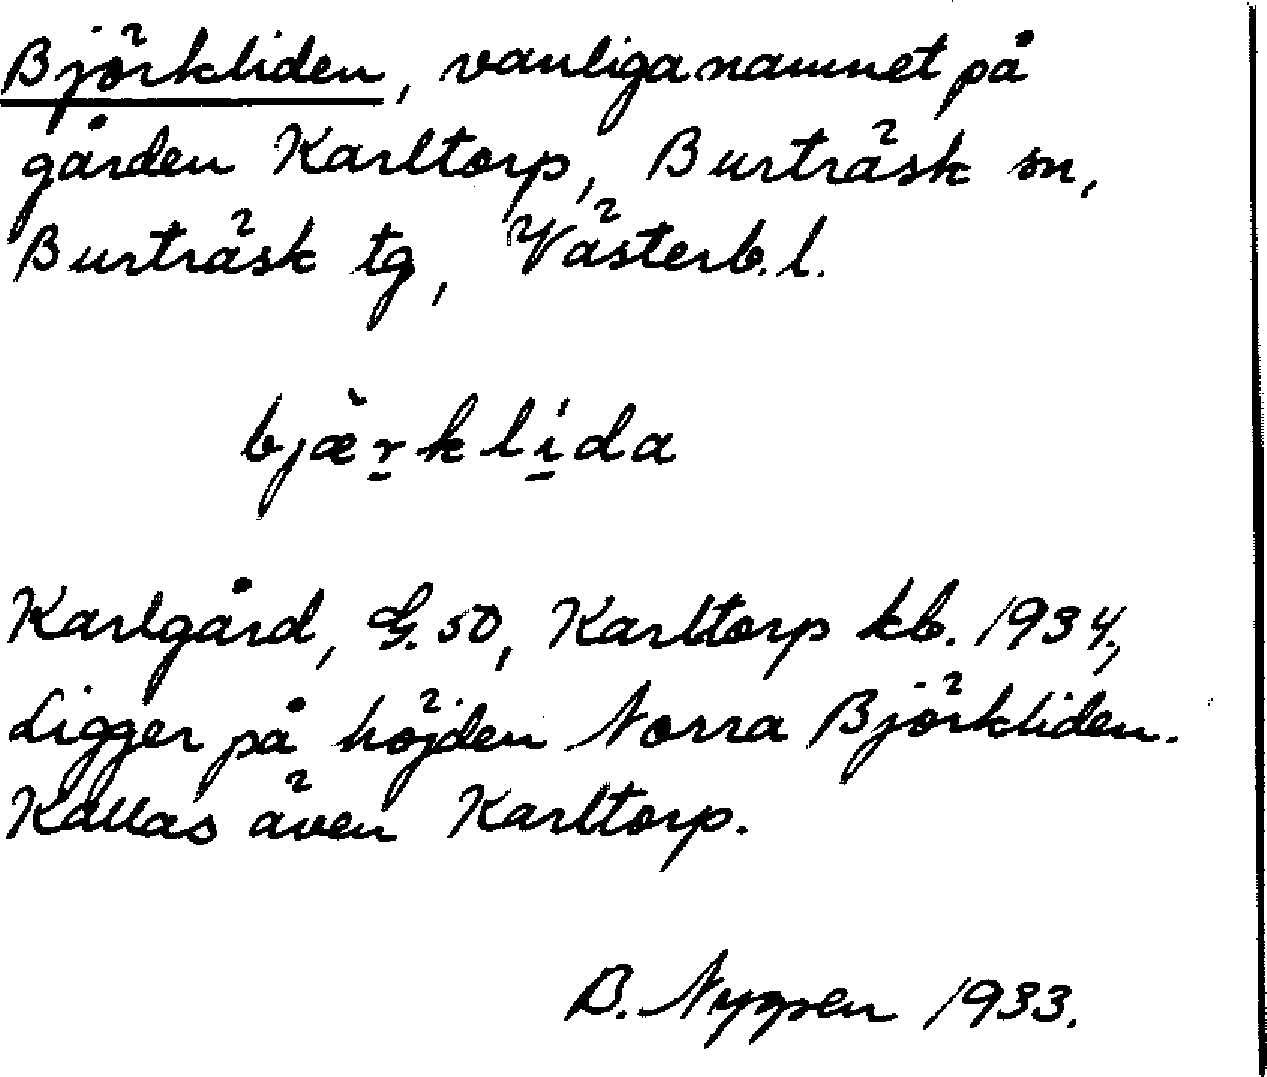 Björkliden, vanliga namnet på
gården Karltorp, Burträsk sn,
Burträsk tg, Västerb. l.
bjæ̀r̠klí̠da
Karlgård, G. 50, Karltorp kb. 1934,
Ligger på höjden Norra Björkliden.
Kallas även Karltorp.
B. Nygren 1933.